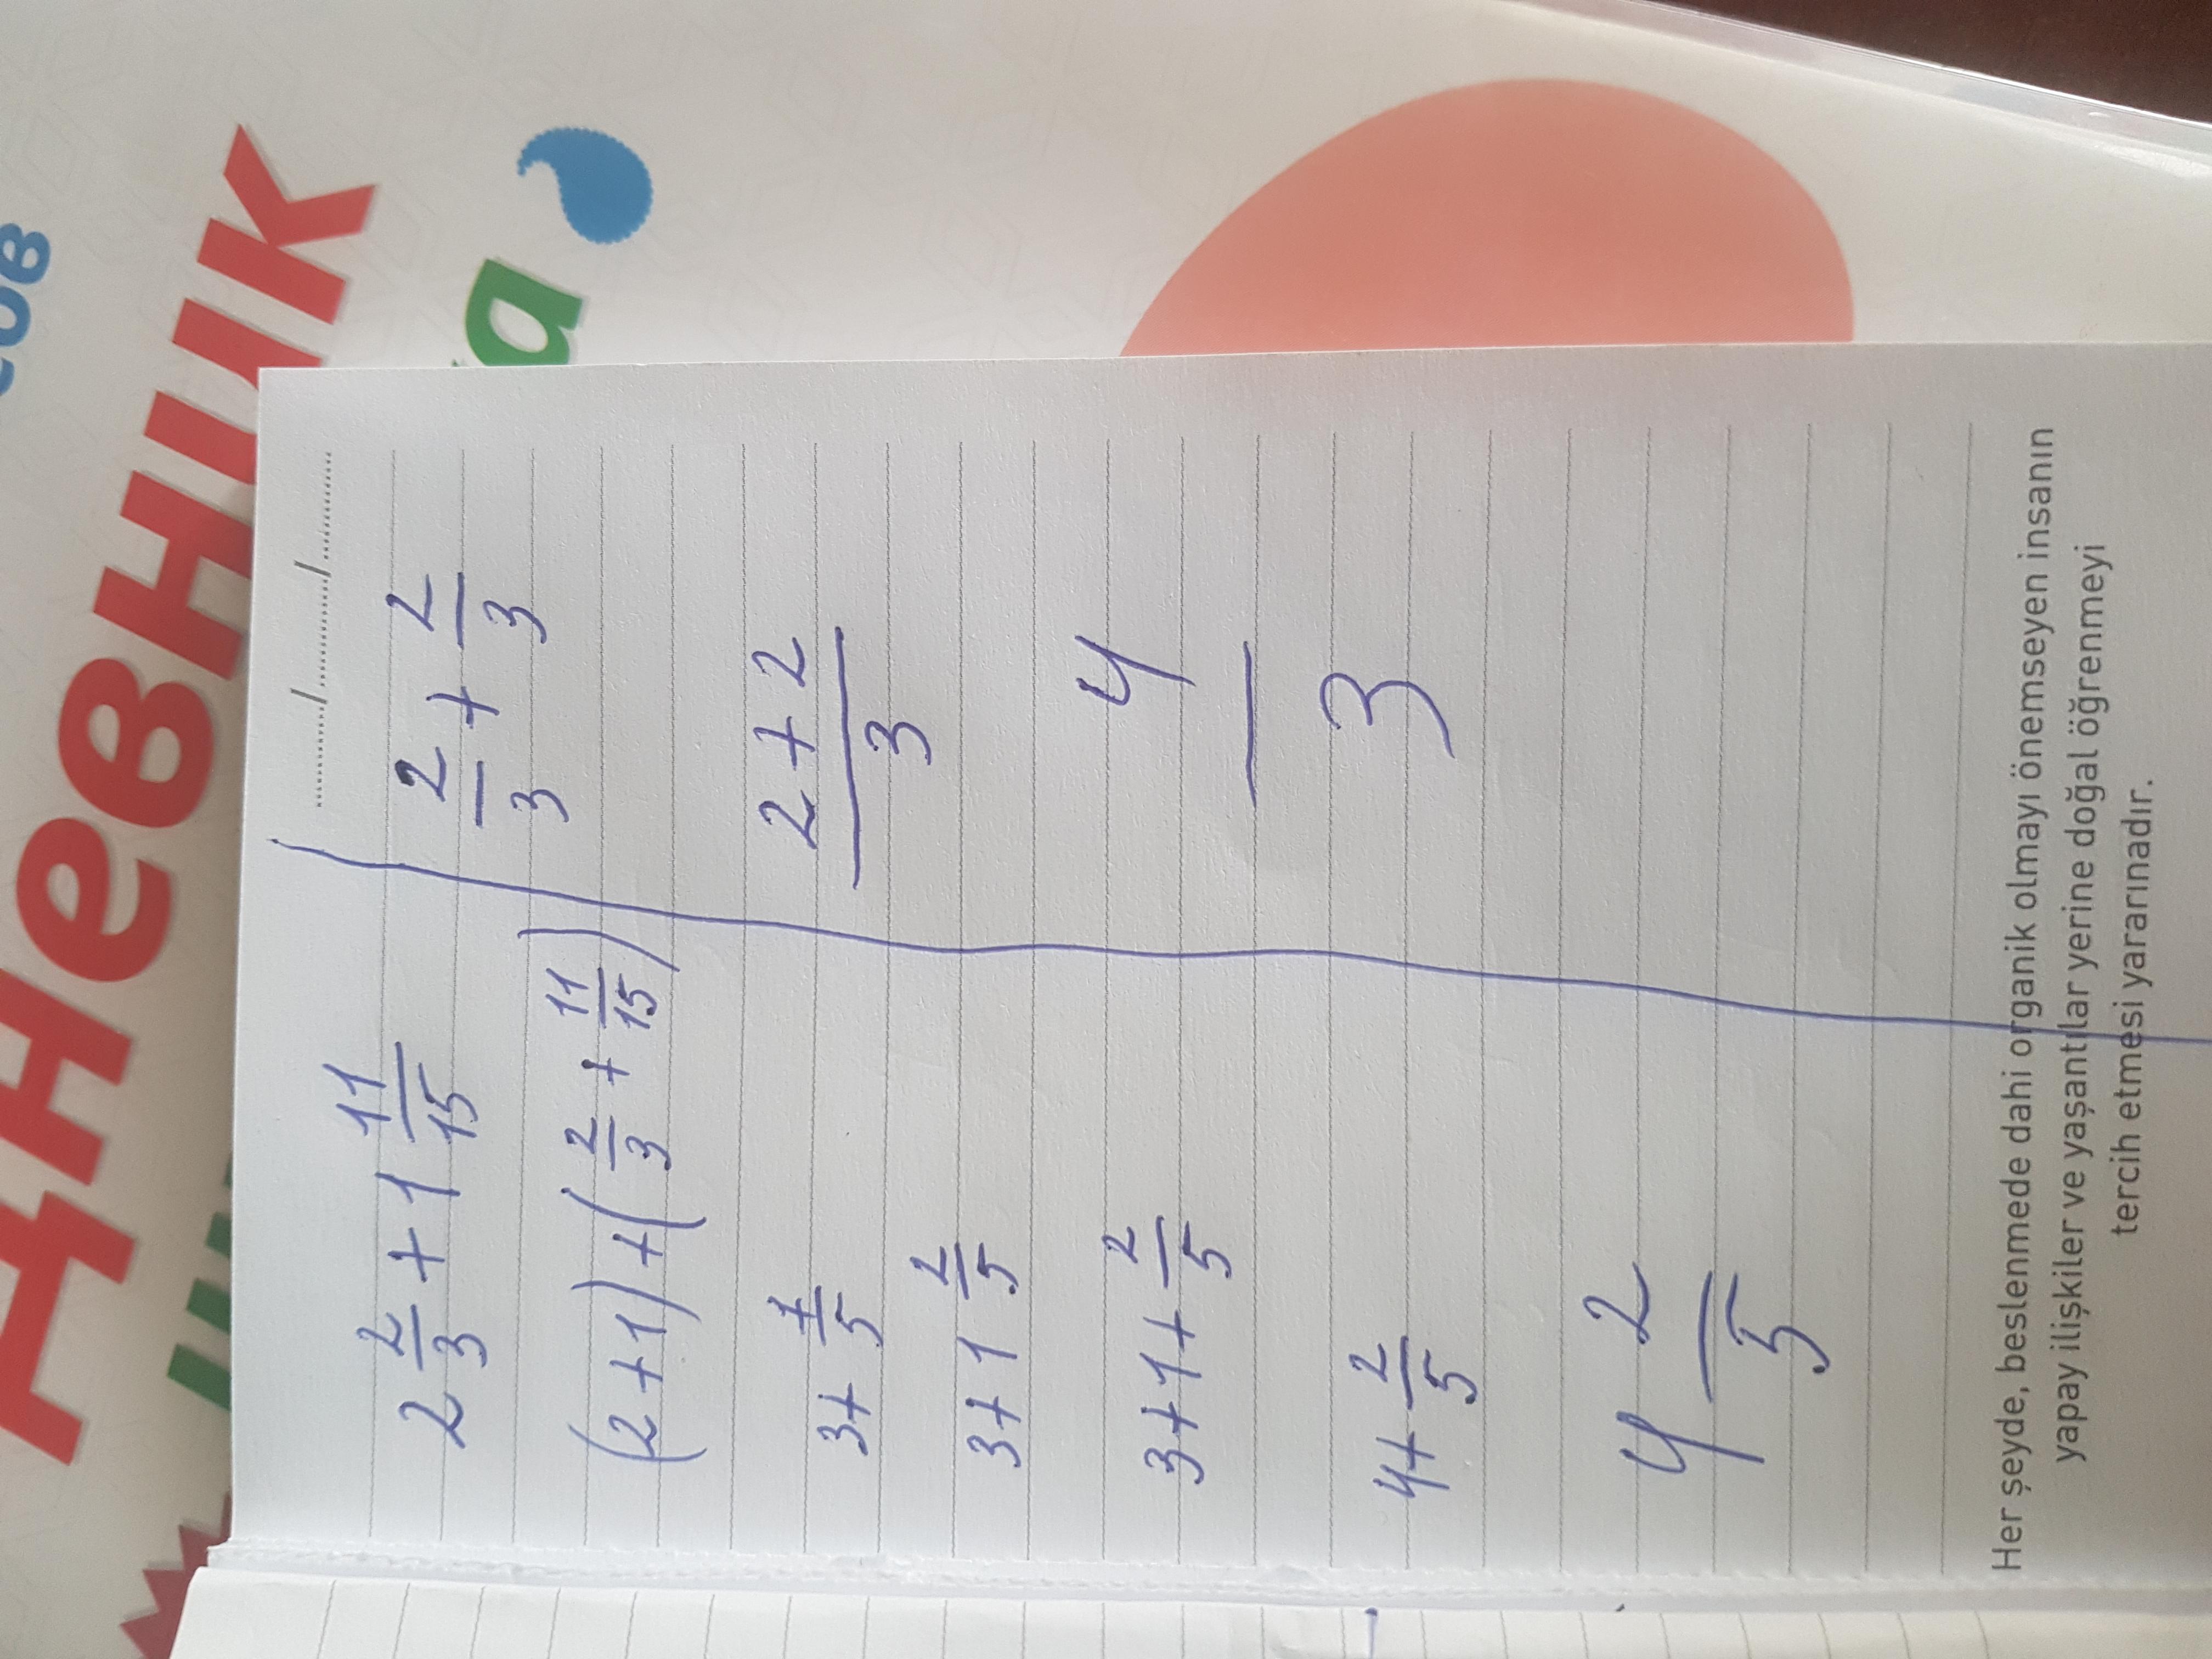 Дневник
2 2/3 + 1 11/15
(2+1)+(2/3 + 11/15)
3+ 7/5
3+1 2/5
3+1+ 2/5
4+ 2/5
4 2/5
........../........../..........
2/3 + 2/3
2+2/3
4/3
Her şeyde, beslenmede dahi organik olmayı önemseyen insanın
yapay ilişkiler ve yaşantılar yerine doğal öğrenmeyi
tercih etmesi yararınadır.